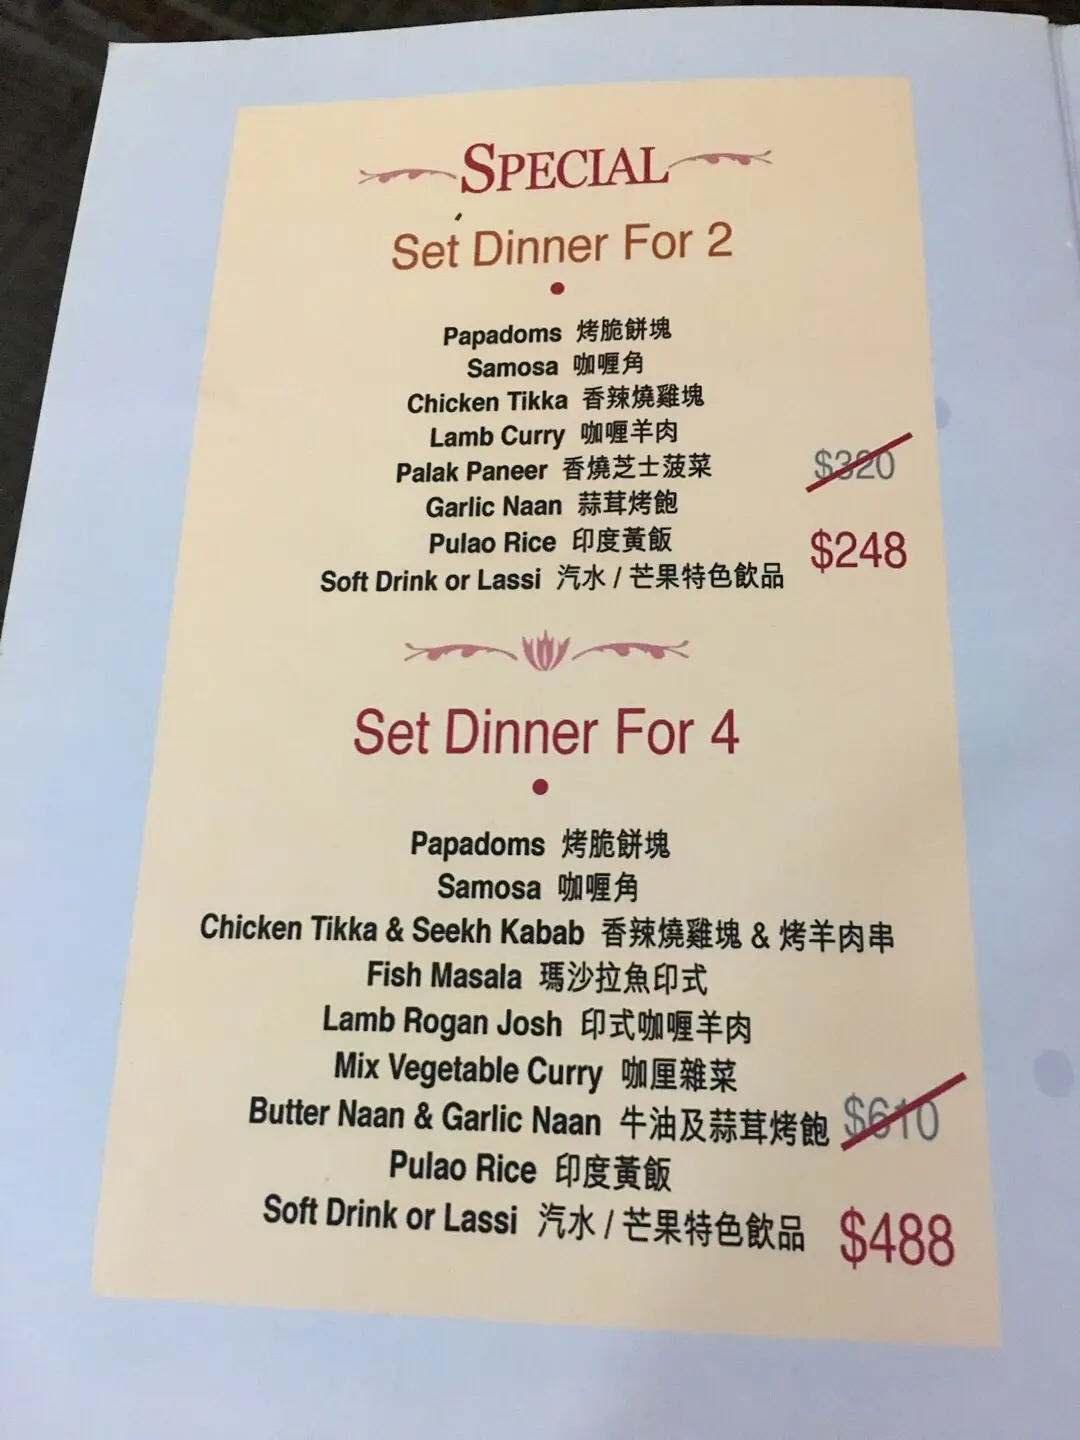 SPECIAL
Set Dinner For 2
Papadoms 烤脆餅塊
Samosa 咖喱角
Chicken Tikka 香辣燒雞塊
Lamb Curry 咖喱羊肉
Palak Paneer 香燒芝士菠菜
$320
Garlic Naan 蒜茸烤飽
Pulao Rice 印度黃飯
$248
Soft Drink or Lassi 汽水 / 芒果特色飲品
Set Dinner For 4
Papadoms 烤脆餅塊
Samosa 咖喱角
Chicken Tikka & Seekh Kabab 香辣燒雞塊 & 烤羊肉串
Fish Masala 瑪沙拉魚印式
Lamb Rogan Josh 印式咖喱羊肉
Mix Vegetable Curry 咖厘雜菜
Butter Naan & Garlic Naan 牛油及蒜茸烤飽
$610
Pulao Rice 印度黃飯
Soft Drink or Lassi 汽水 / 芒果特色飲品
$488